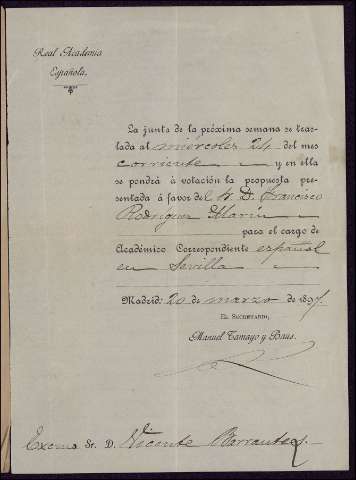 Real Academia
Española.
La junta de la próxima semana se tras-
lada al miércoles 24 del mes
corriente y en ella
se pondrá á votación la propuesta pre-
sentada á favor del Sr. D. Francisco
Rodríguez Marín
para el cargo de
Académico Correspondiente español
en Sevilla
Madrid: 20 de marzo de 1897.
EL SECRETARIO,
Manuel Tamayo y Baus.
Excmo Sr. D. Vicente Barrantes.